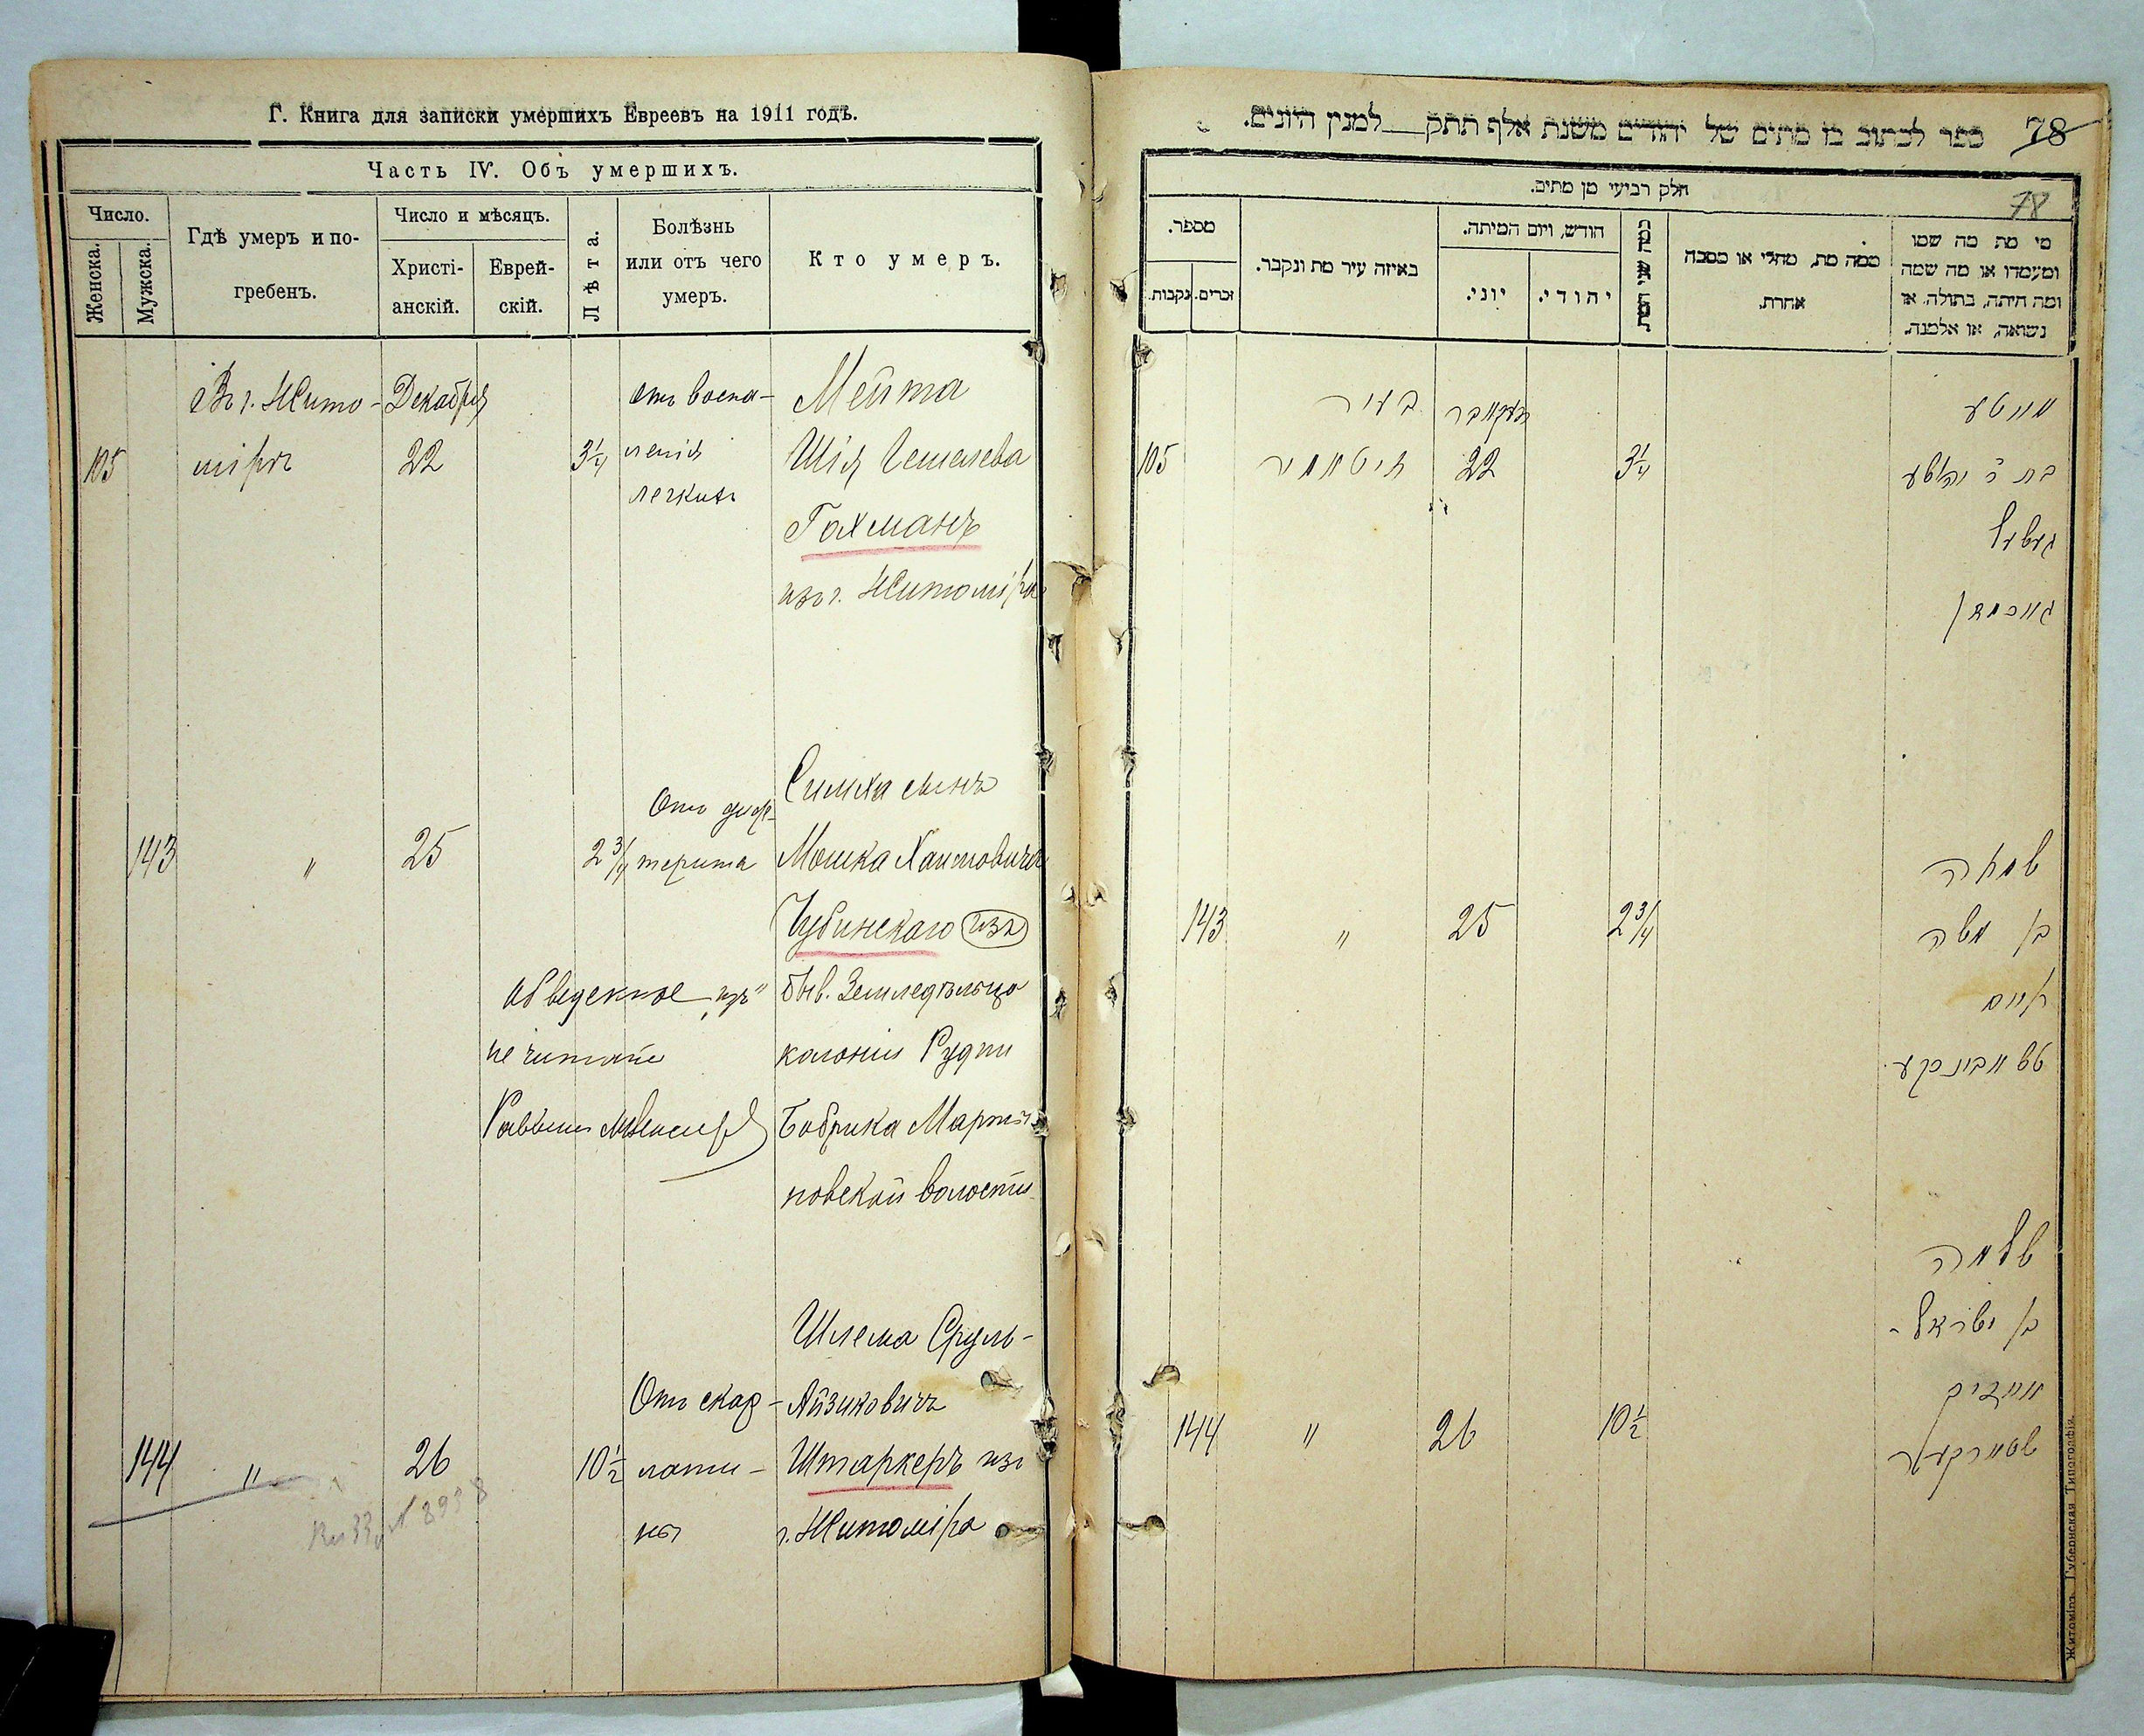 Г. Книга для записки умершихъ Евреевъ на 1911 годъ.
Часть IV. Объ умершихъ.
Число.
Женска.
Мужска.
Гдѣ умеръ и по-
гребенъ.
Число и мѣсяцъ.
Христі-
анскій.
Еврей-
скій.
Лѣта.
Болѣзнь
или отъ чего
умеръ.
Кто умеръ.
105
Въ г. Жито-
мірѣ
Декабря
22
3 1/4
отъ воспа-
ленія
легкихъ
Мейта
Шія
Гахманъ
изъ г. Житоміра
143
"
25
2 3/4
Отъ диф-
терита
Симха сынъ
Мошка Хаимовича
Чубинскаго изъ
быв. Земледѣльцо
колоніи Рудни
Бобрика Марты-
новской волости
обведенное „изъ“
не читать
Раввинъ
144
"
26
10 1/2
Отъ скар-
лати-
ны
Шлема Сруль-
Айзиковичъ
Штаркеръ изъ
г. Житоміра
78
ספר לכתוב בו מתים של יהודים משנת אלף תתק למנין היונים.
78
חלק רביעי מן מתים.
מספר.
נקבות.
זכרים.
באיזה עיר מת ונקבר.
חודש, ויום המיתה.
יוני.
יהודי.
כמה שני המת
ממה מת, מחלי או מסבה
אחרת.
מי מת מה שמו
ומעמדו או מה שמה
ומה היתה, בתולה, או
נשואה, או אלמנה.
105
בעיר
זיטאמיר
דעקאבר
22
3 1/4
מייטע
גאכמאן
143
"
25
2 3/4
שמחה
בן משה
חיים
144
"
26
10 1/2
שלמה
בן ישראל-
אייזיק
שטארקער
Житоміръ. Губернская Типографія.